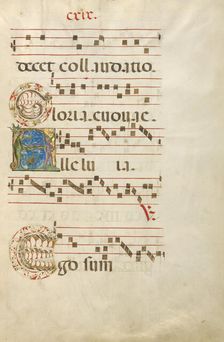 cxix.
decet collaudatio.
Gloria. euouae.
Alleluia.
Ego sum